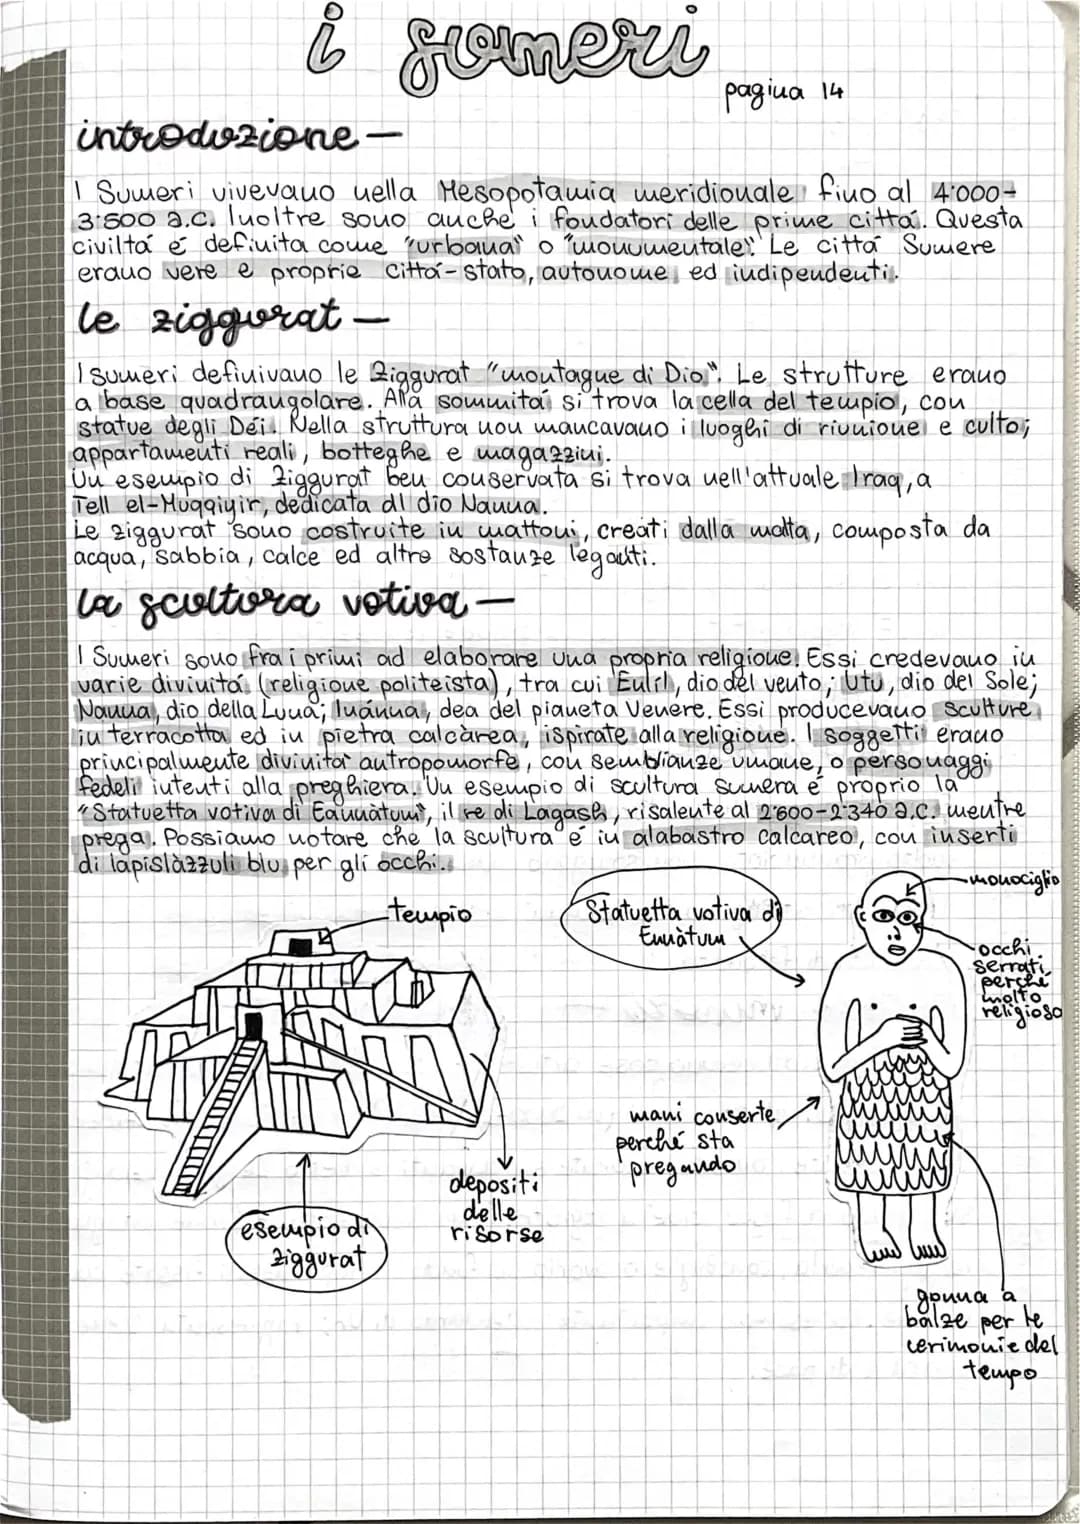 i sumeri
pagina 14
introduzione -
I Sumeri vivevano nella Mesopotamia meridionale fino al 4'000-
3'500 a.C. Inoltre sono anche i fondatori delle prime cittá. Questa
civiltá é definita come "urbana" o "monumentale". Le cittá Sumere
erano vere e proprie cittá-stato, autonome ed indipendenti.
le ziggurat -
I sumeri definivano le Ziggurat "montagne di Dio". Le strutture erano
a base quadrangolare. Alla sommitá si trova la cella del tempio, con
statue degli Déi. Nella struttura non mancavano i luoghi di riunione e culto;
appartamenti reali, botteghe e magazzini.
Un esempio di Ziggurat ben conservata si trova nell'attuale Iraq, a
Tell el-Muqqiyir, dedicata al dio Nanna.
Le ziggurat sono costruite in mattoni, creati dalla malta, composta da
acqua, sabbia, calce ed altre sostanze leganti.
la scultura votiva -
I Sumeri sono fra i primi ad elaborare una propria religione. Essi credevano in
varie divinitá (religione politeista), tra cui Enlil, dio del vento; Utu, dio del Sole;
Nanna, dio della Luna; Inánna, dea del pianeta Venere. Essi producevano sculture
in terracotta ed in pietra calcàrea, ispirate alla religione. I soggetti erano
principalmente divinitá antropomorfe, con semblianze umane, o personaggi
fedeli intenti alla preghiera. Un esempio di scultura sumera é proprio la
"Statuetta votiva di Eannàtum", il re di Lagash, risalente al 2'600-2'340 a.C. mentre
prega. Possiamo notare che la scultura é in alabastro calcareo, con inserti
di lapislàzzuli blu per gli occhi.
tempio
Statuetta votiva di
Ennàtum
monociglio
occhi
serrati
perché
molto
religioso
mani conserte
perché sta
pregando
depositi
delle
risorse
esempio di
ziggurat
gonna a
balze per le
cerimonie del
tempo